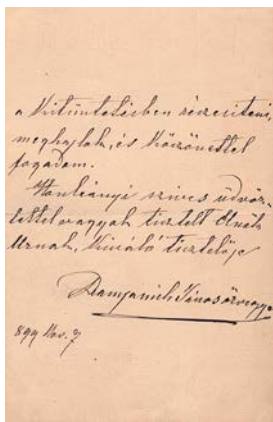 a kitüntetésben részesiteni,
meghajlok, és köszönettel
fogadom.
Honleányi szives üdvöz-
lettel vagyok tisztelt Elnök
Urnak, kiváló tisztelője
Damjanich Jánosözvegye
899 Nov. 7